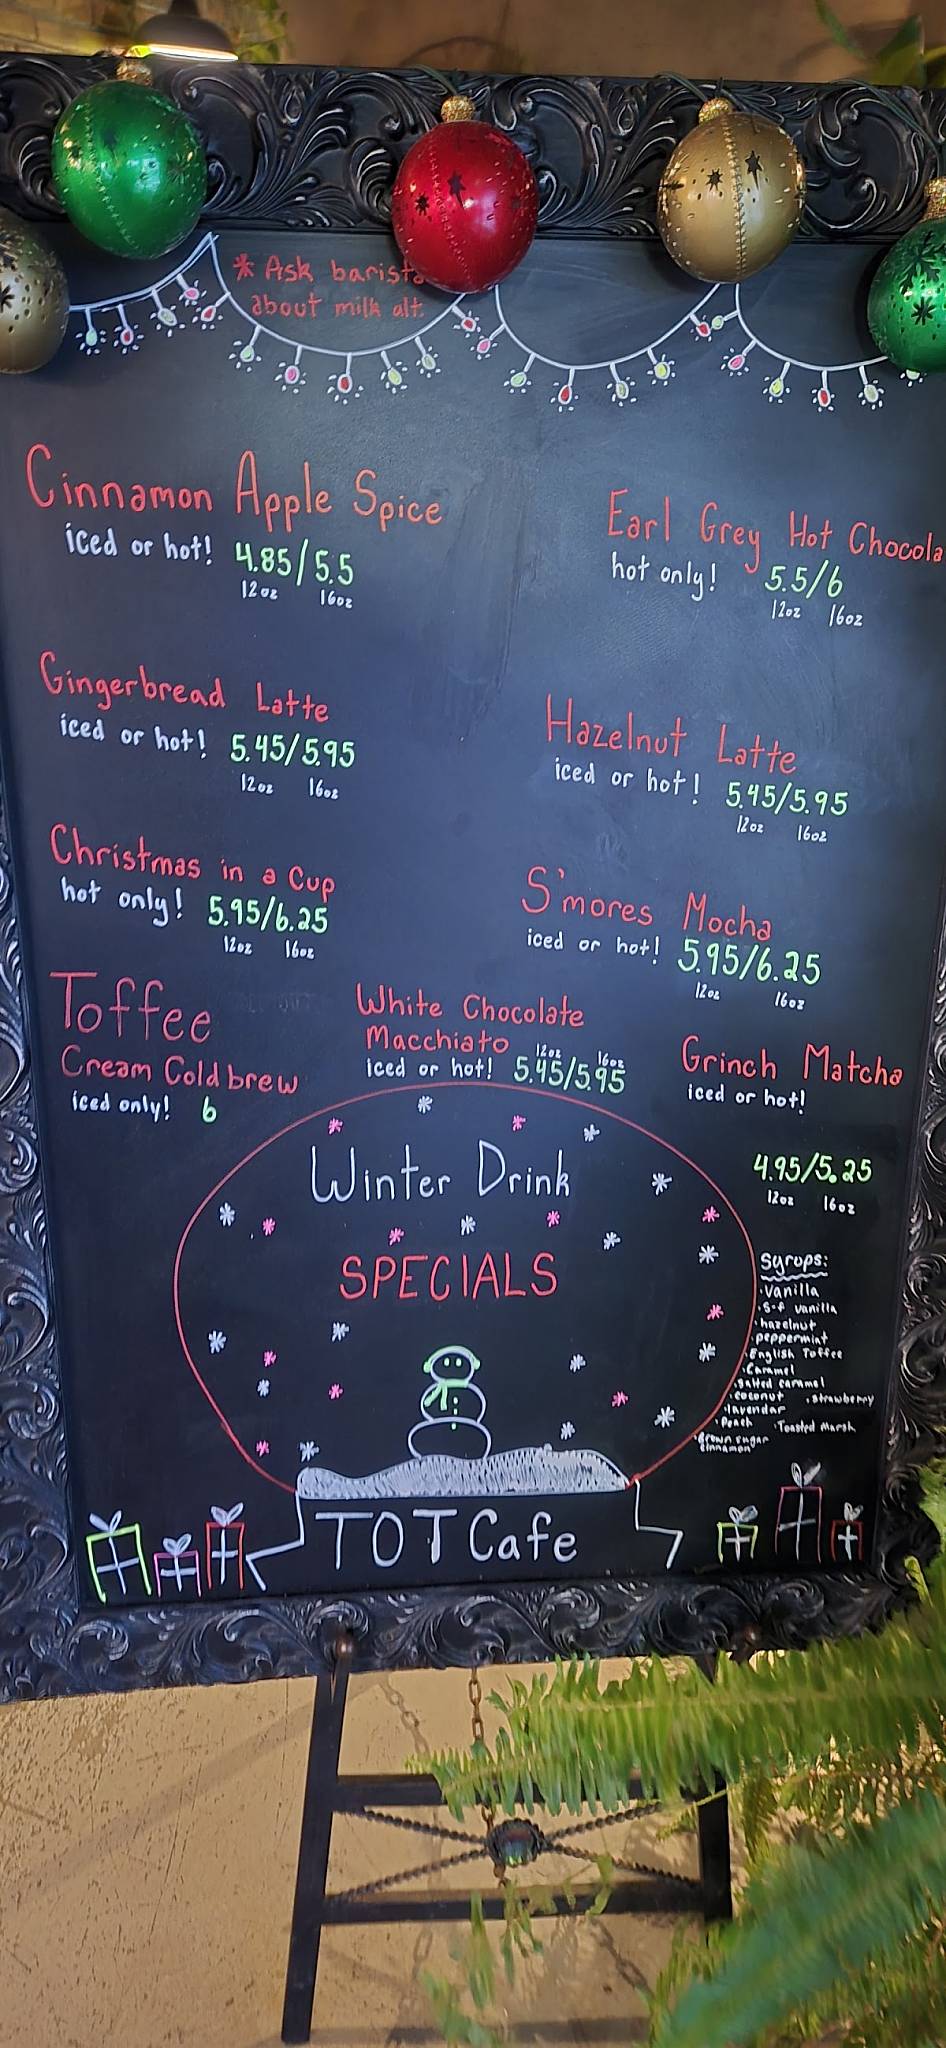 * Ask barista
about milk alt.
Cinnamon Apple Spice
iced or hot! 4.85/5.5
12oz 16oz
Earl Grey Hot Chocola
hot only! 5.5/6
12oz 16oz
Gingerbread Latte
iced or hot! 5.45/5.95
12oz 16oz
Hazelnut Latte
iced or hot! 5.45/5.95
12oz 16oz
Christmas in a Cup
hot only! 5.95/6.25
12oz 16oz
S'mores Mocha
iced or hot! 5.95/6.25
12oz 16oz
Toffee
Cream Cold brew
iced only! 6
White Chocolate
Macchiato 12oz 16oz
iced or hot! 5.45/5.95
Grinch Matcha
iced or hot!
4.95/5.25
12oz 16oz
Winter Drink
SPECIALS
Syrups:
·Vanilla
·S-f vanilla
·hazelnut
·peppermint
·English Toffee
·Caramel
·salted caramel
·coconut ·strawberry
·lavendar
·Peach ·Toasted Marsh
·Brown sugar
cinnamon
TOT Cafe